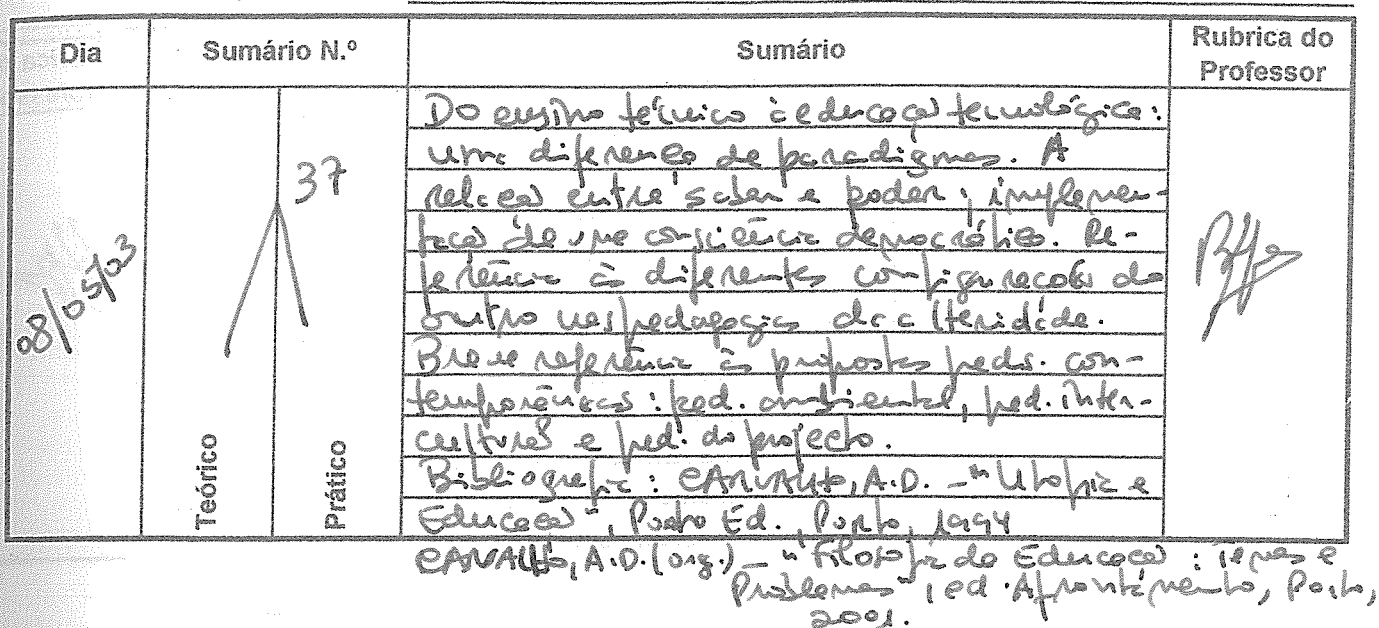 Dia Sumário N.º Sumário Rubrica do Professor
08/05/03
37
Teórico
Prático
Do ensino técnico à educação tecnológica:
uma diferença de paradigmas. A
relação entre saber e poder; implemen-
tação de uma consciência democrática. Re-
ferência às diferentes configurações do
outro nas pedagogias da alteridade.
Breve referência às propostas peds. con-
temporâneas: ped. ambiental, ped. inter-
cultural e ped. do projecto.
Bibliografia: CARVALHO, A.D. - "Utopia e
Educação", Porto Ed., Porto, 1994
CARVALHO, A.D. (org.) - "Filosofia da Educação: Temas e
Problemas", ed. Afrontamento, Porto,
2001.